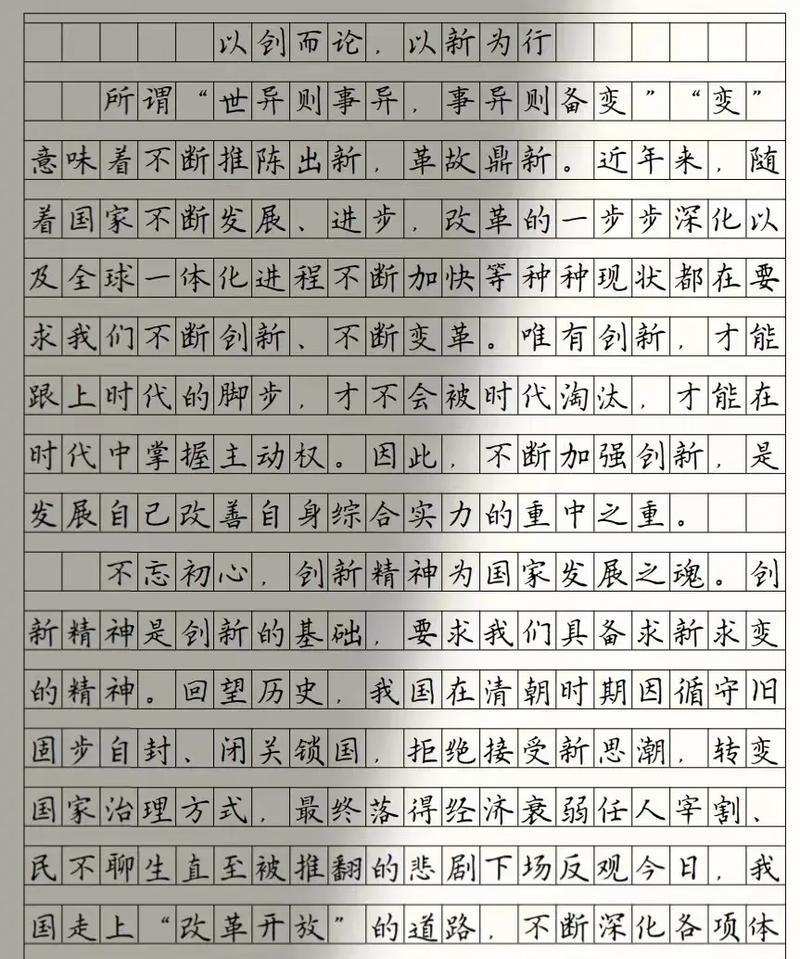 以创而论，以新为行
所谓“世异则事异，事异则备变”“变”
意味着不断推陈出新，革故鼎新。近年来，随
着国家不断发展、进步，改革的一步步深化以
及全球一体化进程不断加快等种种现状都在要
求我们不断创新、不断变革。唯有创新，才能
跟上时代的脚步，才不会被时代淘汰，才能在
时代中掌握主动权。因此，不断加强创新，是
发展自己改善自身综合实力的重中之重。
不忘初心，创新精神为国家发展之魂。创
新精神是创新的基础，要求我们具备求新求变
的精神。回望历史，我国在清朝时期因循守旧
固步自封、闭关锁国，拒绝接受新思潮，转变
国家治理方式，最终落得经济衰弱任人宰割、
民不聊生直至被推翻的悲剧下场反观今日，我
国走上“改革开放”的道路，不断深化各项体